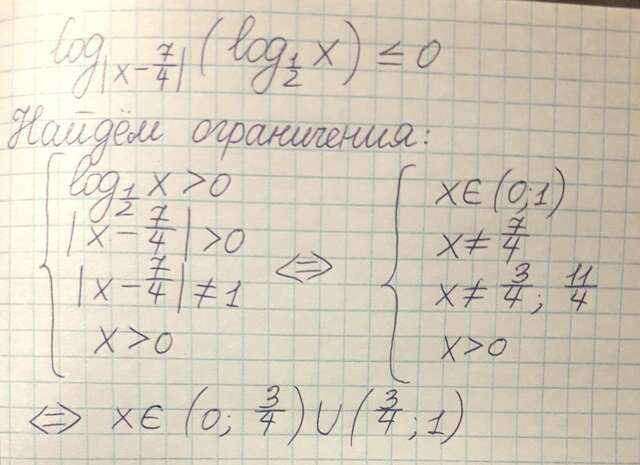 log_{|x-\frac{7}{4}|} (log_{\frac{1}{2}} x) ≤ 0
Найдём ограничения:
{ log_{\frac{1}{2}} x > 0
|x-\frac{7}{4}| > 0
|x-\frac{7}{4}| ≠ 1
x > 0
⇔
{ x ∈ (0;1)
x ≠ \frac{7}{4}
x ≠ \frac{3}{4}; \frac{11}{4}
x > 0
⇔ x ∈ (0; \frac{3}{4}) ∪ (\frac{3}{4}; 1)